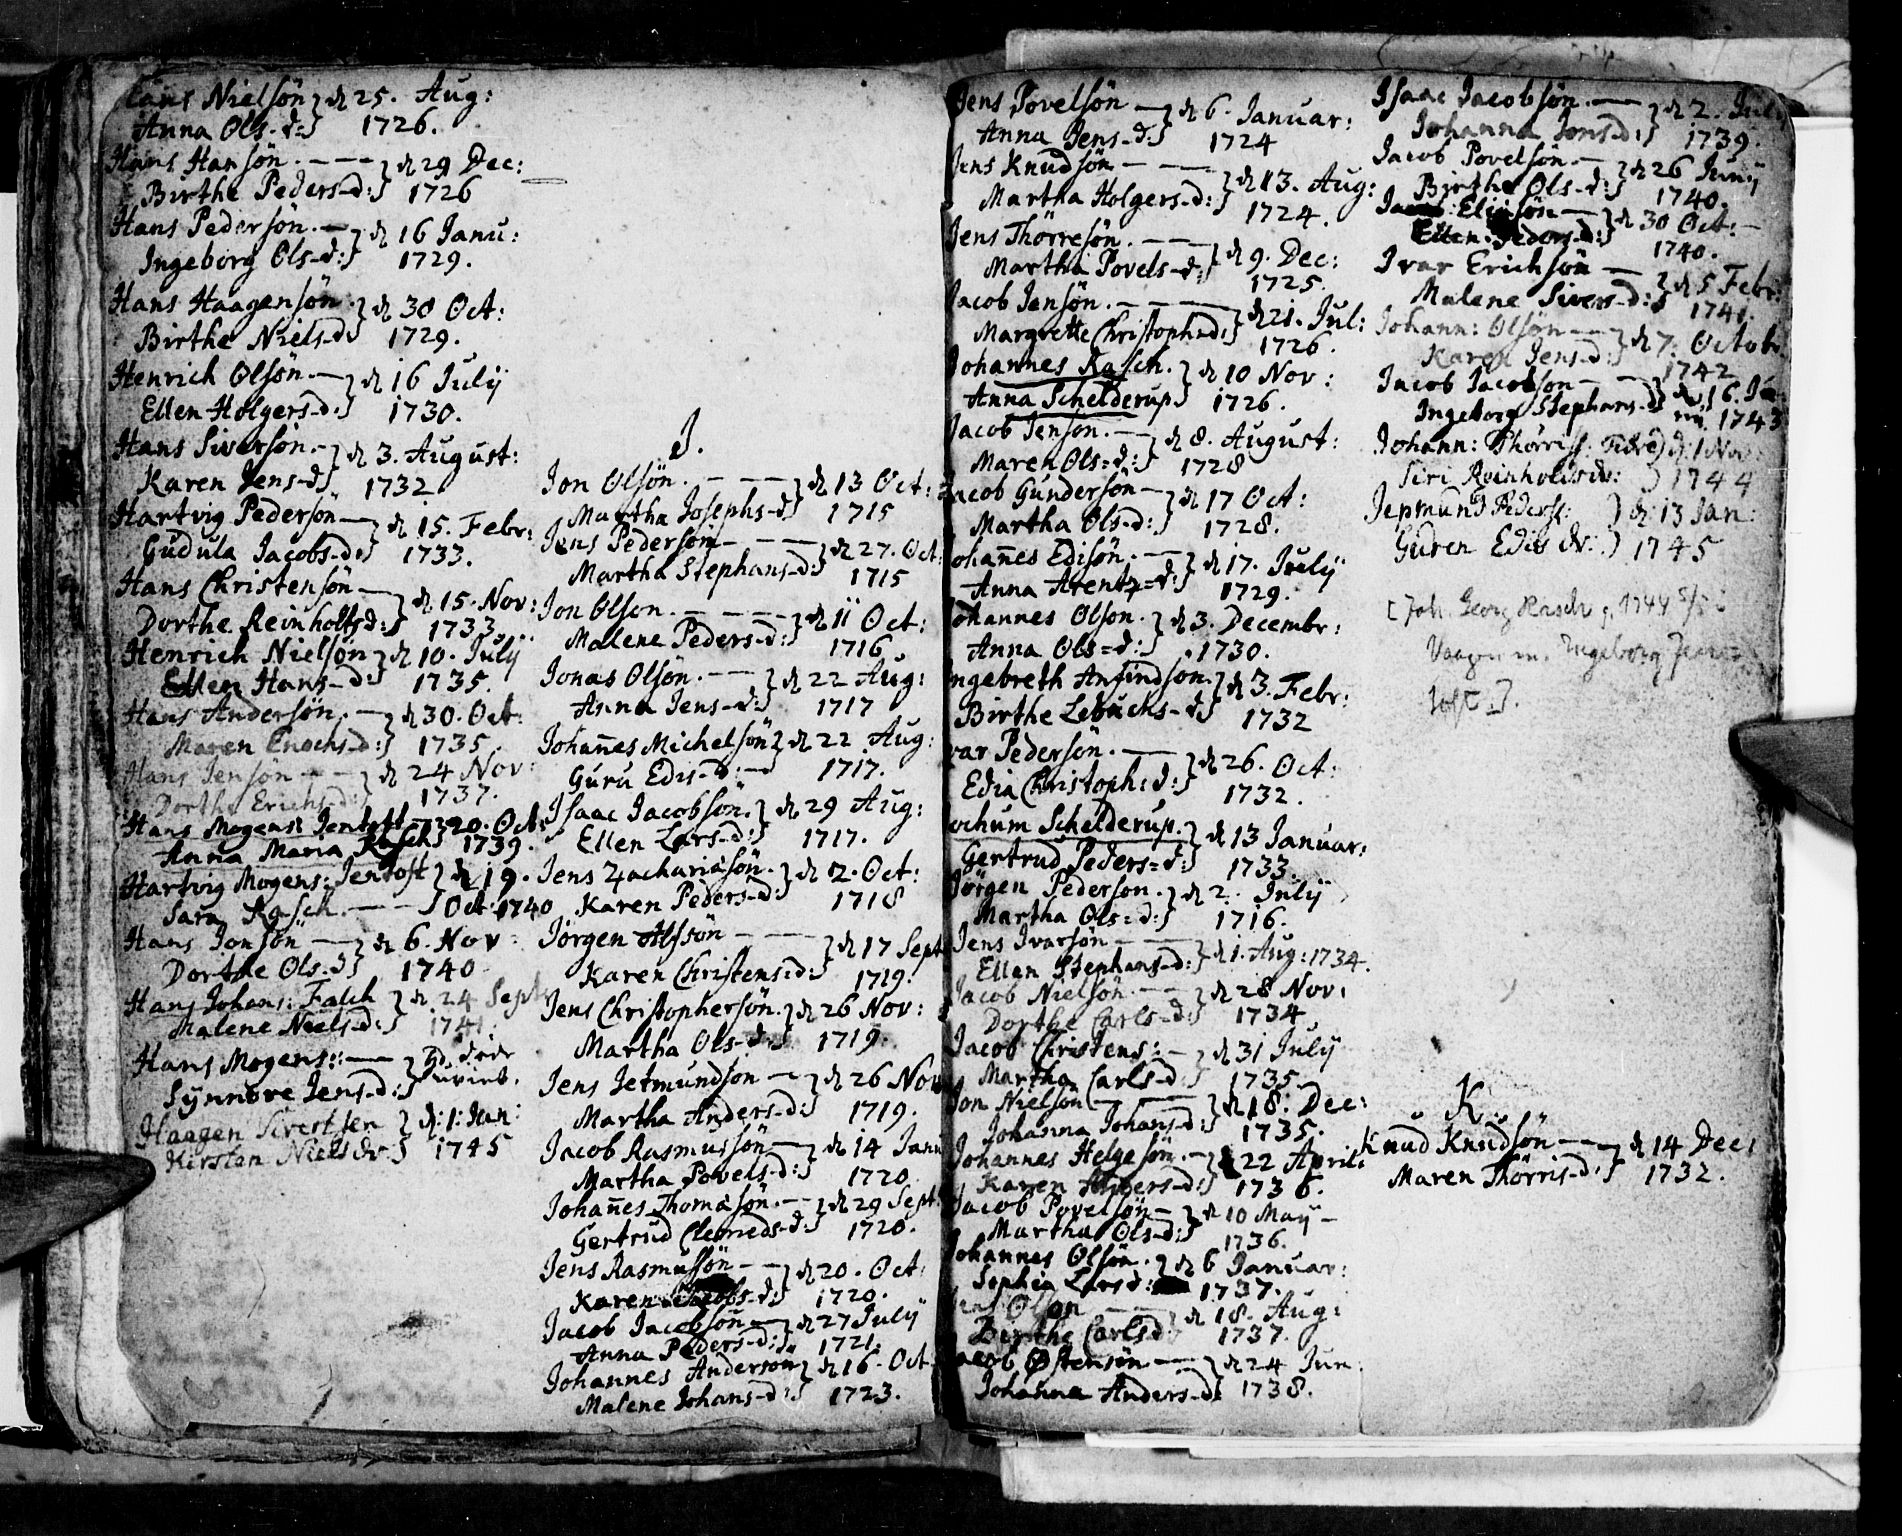 Hans Nielsön } d 25. Aug:
Anna Ols-d: } 1726.
Hans Hansön. --- } d 29 Dec:
Birthe Peders-d: } 1726
Hans Pedersön. - } d 16 Janu:
Ingeborg Ols-d: } 1729.
Hans Haagensön. } d 30 Oct:
Birthe Niels-d } 1729.
Henrich Olsön. - } d 16 Julÿ
Ellen Holgers-d: } 1730.
Hans Siversön. - } d 3. August:
Karen Jens-d } 1732.
Hartvig Pedersön - } d 15. Febr:
Gudula Jacobs-d: } 1733.
Hans Christensön - } d 15. Nov:
Dorthe Reinholtsd: } 1733.
Henrich Nielsön } d 10. Julÿ
Ellen Hans-d: } 1735.
Hans Andersön. - } d 30. Oct:
Maren Enochs-d: } 1735.
Hans Jensön -- } d 24 Nov:
Dorthe Erichs-d: } 1737.
Hans Mogens: Jentoft } 20. Oct:
Anna Maria Rasch } 1739.
Hartvig Mogens: Jentoft } d 19.
Sara Rasch. -- } Oct: 1740
Hans Jonsön - } d 6. Nov:
Dorthe Ols-d } 1740
Hans Johans: Falch } d 24 Sept
Malene Niels-d: } 1741.
Hans Mogens: -
Sÿnnöve Jens-d:
Haagen Sivertsen } d: 1: Jan:
Kirsten Niels dr } 1745
J.
Jon Olsön. --- } d 13 Oct:
Martha Josephs-d } 1715
Jens Pedersön --- } d 27. Oct:
Martha Stephans-d: } 1715
Jon Olson. --- } d 11 Oct:
Malene Peders-d: } 1716
Jonas Olsön. -- } d 22 Aug:
Anna Jens-d: } 1717
Johañes Michelsön } d 22 Aug:
Guru Edis-d: - } 1717.
Isaac Jacobsön. } d 29 Aug:
Ellen Lars-d: } 1717.
Jens Zachariasön. } d 2. Oct:
Karen Peders-d: } 1718
Jörgen Alfsön --- } d 17 Sept
Karen Christens:d: } 1719.
Jens Christophersön. } d 26 Nov:
Martha Ols-d: } 1719.
Jens Jetmundson - } d 26 Nov
Martha Anders-d: } 1719.
Jacob Rasmussön - } d 14 Janu
Martha Povels-d: } 1720
Johañes Thomasön. - } d 29 Sept:
Gertrud Clemeds-d: } 1720.
Jens Rasmussön -- } d 20. Oct:
Karen Jacobs-d: } 1720.
Jacob Jacobsön - } d 27 Julÿ
Anna Peders-d: } 1721.
Johannes Andersön } d 16. Oct
Malene Johans-d: } 1723.
Jens Povelsön - } d 6. Januar:
Anna Jens-d: } 1724
Jens Knudsön -- } d 13. Aug:
Martha Holgers-d: } 1724.
Jens Thörresön. -- } d 9. Dec:
Martha Povels-d: } 1725.
Jacob Jensön. --- } d 21. Jul:
Margrette Christoph:d: } 1726.
Johannes Rasch. } d 10 Nov:
Anna Schelderup } 1726.
Jacob Jenson. - } d 8. August:
Maren Ols=d: } 1728
Jacob Gundersön - } d 17 Oct:
Martha Ols-d: } 1728.
Johañes Edisön. - } d 17. Julÿ
Anna Arentz=d: } 1729.
Johannes Olson. } d 3. Decembr:
Anna Ols=d: } 1730.
Ingebreth Anfindson. } d 3. Febr:
Birthe Lebuchs-d: } 1732
Ivar Pedersön. - } d 26. Oct:
Edia Christoph:d: } 1732.
Jochum Schelderup. } d 13 Januar:
Gertrud Peders=d: } 1733.
Jörgen Pederson. } d 2. Julÿ
Martha Ols=d: } 1716.
Jens Ivarsön -- } d 1. Aug: 1734.
Ellen Stephans-d: }
Jacob Nielsön. - } d 28 Nov:
Dorthe Carls-d: } 1734
Jacob Christens: - } d 31 Julÿ
Martha Carls-d: } 1735
Jon Nielsön --- } d 18. Dec:
Johanna Johans-d: } 1735.
Johannes Helgesön. - } 22 April:
Karen Anders-d: } 1736.
Jacob Povelsön - } d 10 Maÿ -
Martha Ols-d: } 1736.
Johannes Olsön. } d 6 Januar:
Sophia Lars d: } 1737.
Jens Olson -- } d 18. Aug:
Birthe Carlsd: } 1737.
Jacob Östensön - } d 24 Jun:
Johanna Anders-d: } 1738.
Isaac Jacobsön. - } d 2. Julÿ
Johanna Jons-d: } 1739.
Jacob Povelsön. - } d 26 Junÿ
Birthe Ols-d: } 1740.
Jacob: Eliasön - } d 30 Oct: -
Ellen: Peders-d: } 1740.
Ivar Erichsön - } d 5 Febr:
Malene Sivers-d: } 1741.
Johann: Olsön -- } d 7. Octob
Karen Jens-d: } 1742
Jacob Jacobson - } d 16. Ja-
Ingeborg Stephans-d } nu. 1743
Johann: Thörris: } d: 1 Nov:
Siri Reinholds dr: ) 1744
Jepmund Peders: ) d: 13 Jan:
Guren Edis dr: ) 1745
[Joh. Georg Rasch g. 1744 5/5 i
Vaagen m. Ingeborg Jen-
toft].
K.
Knud Knudsön - } d 14 Dec:
Maren Thörris-d: } 1732.